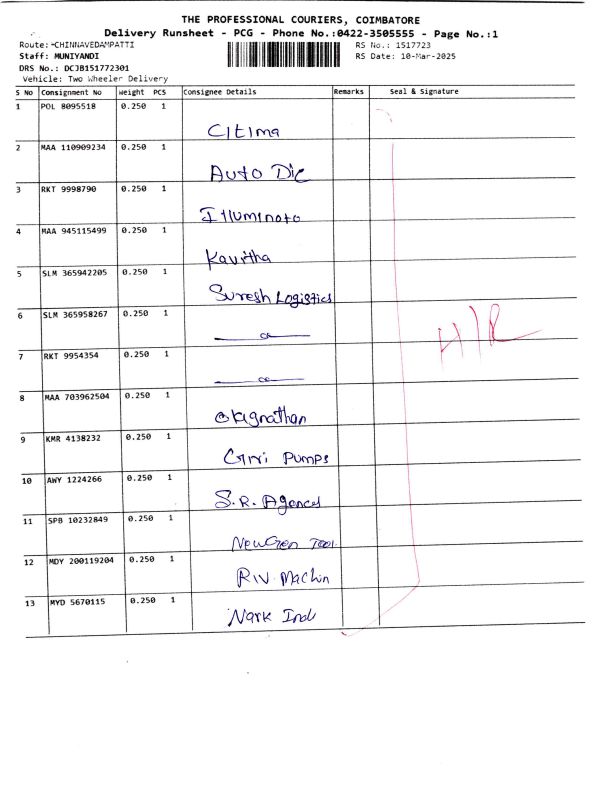 THE PROFESSIONAL COURIERS, COIMBATORE
Delivery Runsheet - PCG - Phone No.:0422-3505555 - Page No.:1
Route: -CHINNAVEDAMPATTI
RS No.: 1517723
Staff: MUNIYANDI
RS Date: 10-Mar-2025
DRS No.: DCJB151772301
Vehicle: Two Wheeler Delivery
S No Consignment No Weight PCS Consignee Details Remarks Seal & Signature
1 POL 8095518 0.250 1
Citima
2 MAA 110909234 0.250 1
Auto Die
3 RKT 9998790 0.250 1
Illuminoto
4 MAA 945115499 0.250 1
Kavitha
5 SLM 365942205 0.250 1
Suresh Logistics
6 SLM 365958267 0.250 1
7 RKT 9954354 0.250 1
8 MAA 703962504 0.250 1
9 KMR 4138232 0.250 1
Pumps
10 AWY 1224266 0.250 1
S.R. Agences
11 SPB 10232849 0.250 1
NewGen Tool
12 MDY 200119204 0.250 1
Machin
13 MYD 5670115 0.250 1
Nark Ind